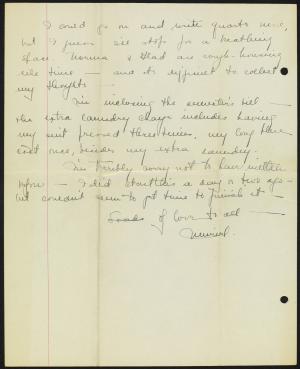 I could go on and write quarts more,
but I guess I'll stop for a breathing
space. Norma & Thad are rough-housing
all the time — and it's difficult to collect
my thoughts —
I'm inclosing the semester's bill —
the extra laundry charge includes having
my suit pressed three times, my long blue
coat once, besides my extra laundry.
I'm terribly sorry not to have written
before — I did start this a day or two ago —
but couldn't seem to get time to finish it —
Loads of love to all —
Muriel.